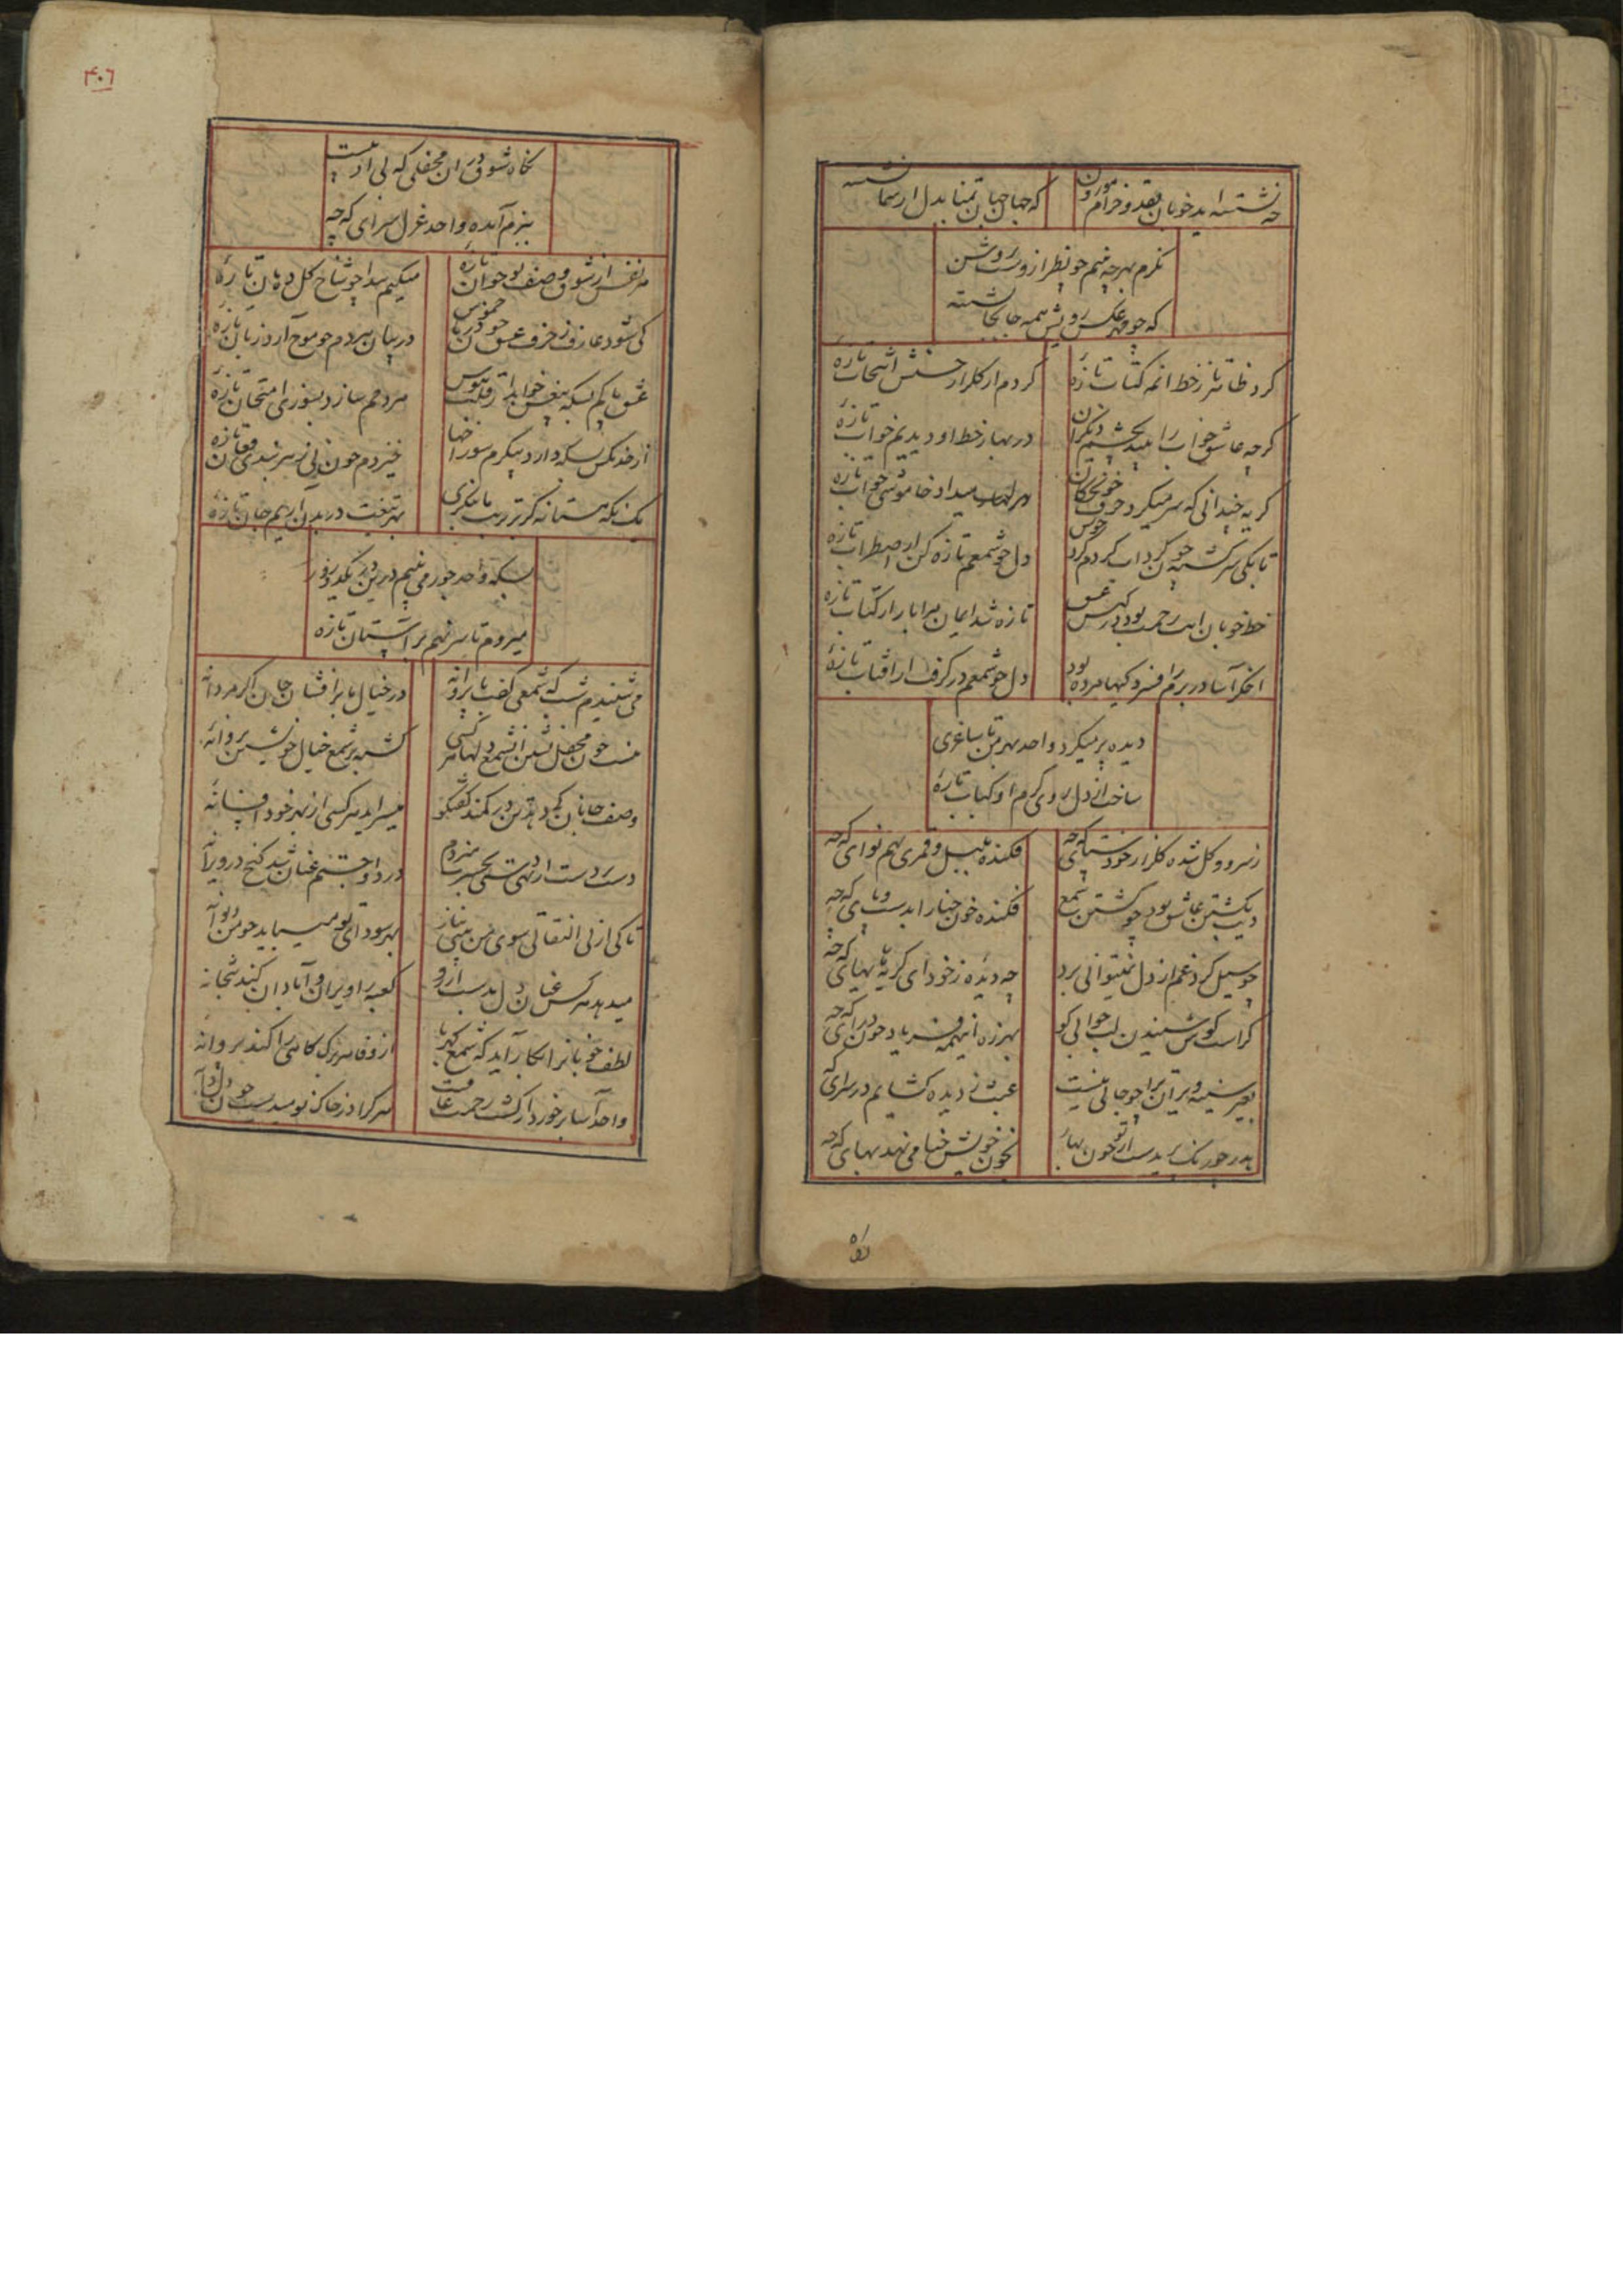 چه نشسته اید خوبان بقد و خرام موزون
که جهان جهان تمنا بدل از شما نشسته
نگرم بهر چه بینم چو نظر ازوست روشن
که چو مهر عکس رویش همه جا بجا نشسته
کرد ظاهر از خط آنمه کتاب تازه
کردم از گلزار حسنش انتخاب تازه
گرچه عاشق خواب را بیند بچشم دیگران
در بهار خط او دیدیم خواب تازه
گریه چندانی که سر میکرد حرف خونچکان
میداد خاموشی جواب تازه
تا بکی سرگشته چون گرداب گردم گرد خویش
دل چو شمعم تازه کن از اضطراب تازه
خط خوبان آیت رحمت بود در کیش عشق
تازه شد ایمان مرا باز از کتاب تازه
اخگر آسا در برم افسرده بود
دل چو شمعم در گرفت از آفتاب تازه
دیده پر میکرد واحد بهر من تا ساغری
ساخت از دل روی گرم او کباب تازه
ز سرو و گل شده گلزار خودستای که چه
فکنده بلبل و قمری بهم نوای که چه
بکشتن عاشق بود چو کشتن شمع
فکنده خون حنا را بدست و پای که چه
چو سیل گرد غم از دل نمیتوانی برد
چه دیده ز خود ای گریه های های که چه
کراست گوش شنیدن لب جوابی کو
بهرزه اینهمه فریاد چون درای که چه
بغیر سینه ویران مرا چو جائی نیست
عبث ز دیده گشایم در سرای که چه
پدر خور رنگ پریدست از تو خون بهار
بخون خویش حنا می نهد بهای که چه
راه
۴۰۶
نگاه شوق در آن محفلی که بی او نیست
ببزم آمده واحد غزل سرای که چه
هر نفس از شوق وصف نوجوان تازه
میکنم پیدا چو شاخ گل دهان تازه
کی شود عارف ز حرف عشق چون دریا خموش
در بیان هر دم چو موج آرد زبان تازه
عشق پاکم بسکه بیغش خواهد از قلب هوس
هر دمم سازد بنوری امتحان تازه
از خدنگش بسکه دارد پیکرم سوراخها
خیزدم چون نی ز هر بندی فغان تازه
یک نگه مستانه گر بر تربت ما بنگری
بهر تیغت در بدن آریم جان تازه
بسکه واحد جور می بینم درین دیر یکدو روز
میروم تا سر نهم بر آستان تازه
می شنیدم شب که شمعی گفت با پروانه
در خیال ما برافشان جان اگر مردانه
نیست چون محفل نشین آن شمع دلها هر کسی
گشته بر شمع خیال خویشتن پروانه
وصف جانان کی دهد تن در کمند گفتگو
میسراید هر کسی از بهر خود افسانه
دست بر دست از تهی دستی بحسرت میزدم
درد او جستم عیان شد گنج در ویرانه
تا کی از بی التفاتی سوی من بینی بناز
بهر سودای تو میباید چو من دیوانه
میدهد هر کس عنان دل بدست آرزو
کعبه را ویران و آبادان کند بتخانه
لطف خوبانرا بکار آید که شمع کبریا
از وفا هر برگ کاهی را کند پروانه
واحد آسا بر خورد از کشت رحمت عاقبت
هر کرا در خاک نومیدیست چون دل دانه